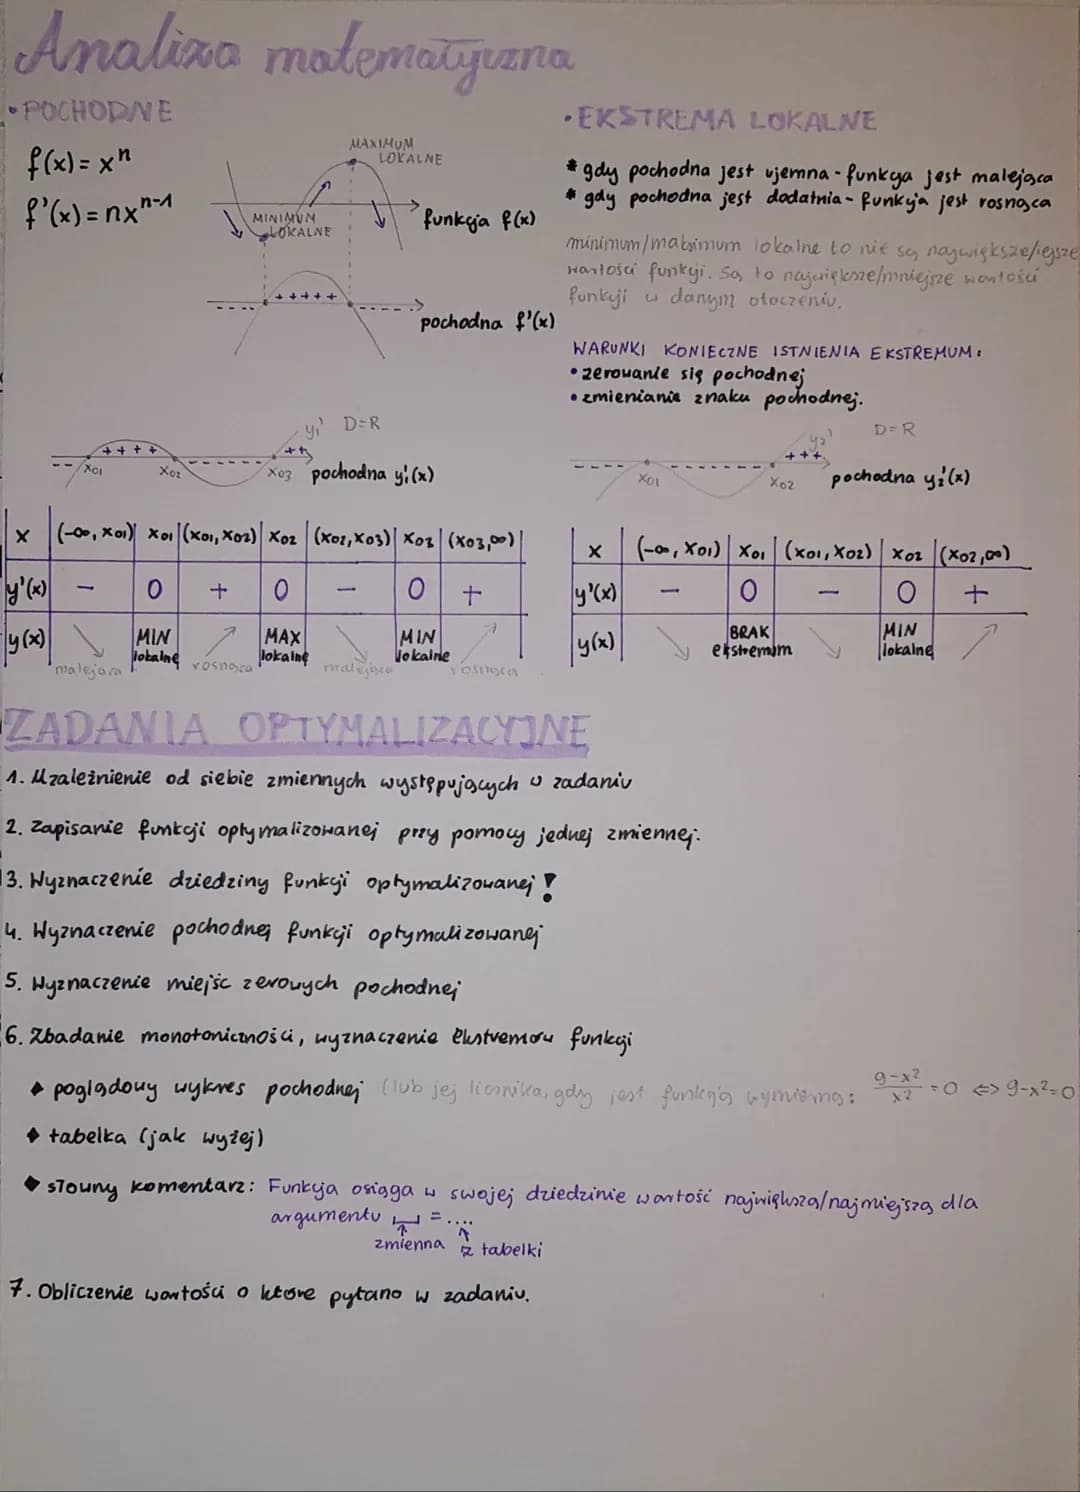 Analiza matematyczna
• POCHODNE
f(x) = xⁿ
f'(x) = nxⁿ⁻¹
MAXIMUM
LOKALNE
MINIMUM
LOKALNE
funkcja f(x)
+ + + + +
pochodna f'(x)
• EKSTREMA LOKALNE
* gdy pochodna jest ujemna - funkcja jest malejąca
* gdy pochodna jest dodatnia - funkcja jest rosnąca
minimum/maksimum lokalne to nie są największe/iejsze
wartości funkcji. Są to największe/mniejsze wartości
funkcji w danym otoczeniu.
WARUNKI KONIECZNE ISTNIENIA EKSTREMUM:
• zerowanie się pochodnej
• zmienianie znaku pochodnej.
y₁' D=R
-- x₀₁ + + + + x₀₂ ------ x₀₃ ++
pochodna y₁'(x)
x (-∞, x₀₁) x₀₁ (x₀₁, x₀₂) x₀₂ (x₀₂, x₀₃) x₀₃ (x₀₃, ∞)
y'(x) − 0 + 0 − 0 +
y(x) ↘ MIN lokalne ↗ MAX lokalne ↘ MIN lokalne ↗
malejąca rosnąca malejąca rosnąca
y₂' D=R
---- x₀₁ ------ x₀₂ +++
pochodna y₂'(x)
x (-∞, x₀₁) x₀₁ (x₀₁, x₀₂) x₀₂ (x₀₂, ∞)
y'(x) − 0 − 0 +
y(x) ↘ BRAK ekstremum ↘ MIN lokalne ↗
ZADANIA OPTYMALIZACYJNE
1. Uzależnienie od siebie zmiennych występujących w zadaniu
2. Zapisanie funkcji optymalizowanej przy pomocy jednej zmiennej.
3. Wyznaczenie dziedziny funkcji optymalizowanej !
4. Wyznaczenie pochodnej funkcji optymalizowanej
5. Wyznaczenie miejsc zerowych pochodnej
6. Zbadanie monotoniczności, wyznaczenie ekstremów funkcji
♦ poglądowy wykres pochodnej (lub jej licznika, gdy jest funkcją wymierną: (9-x²)/x² = 0 <=> 9-x²=0
♦ tabelka (jak wyżej)
♦ słowny komentarz: Funkcja osiąga w swojej dziedzinie wartość największą/najmniejszą dla
argumentu ⎵ = ....
↑ zmienna ↑ z tabelki
7. Obliczenie wartości o które pytano w zadaniu.